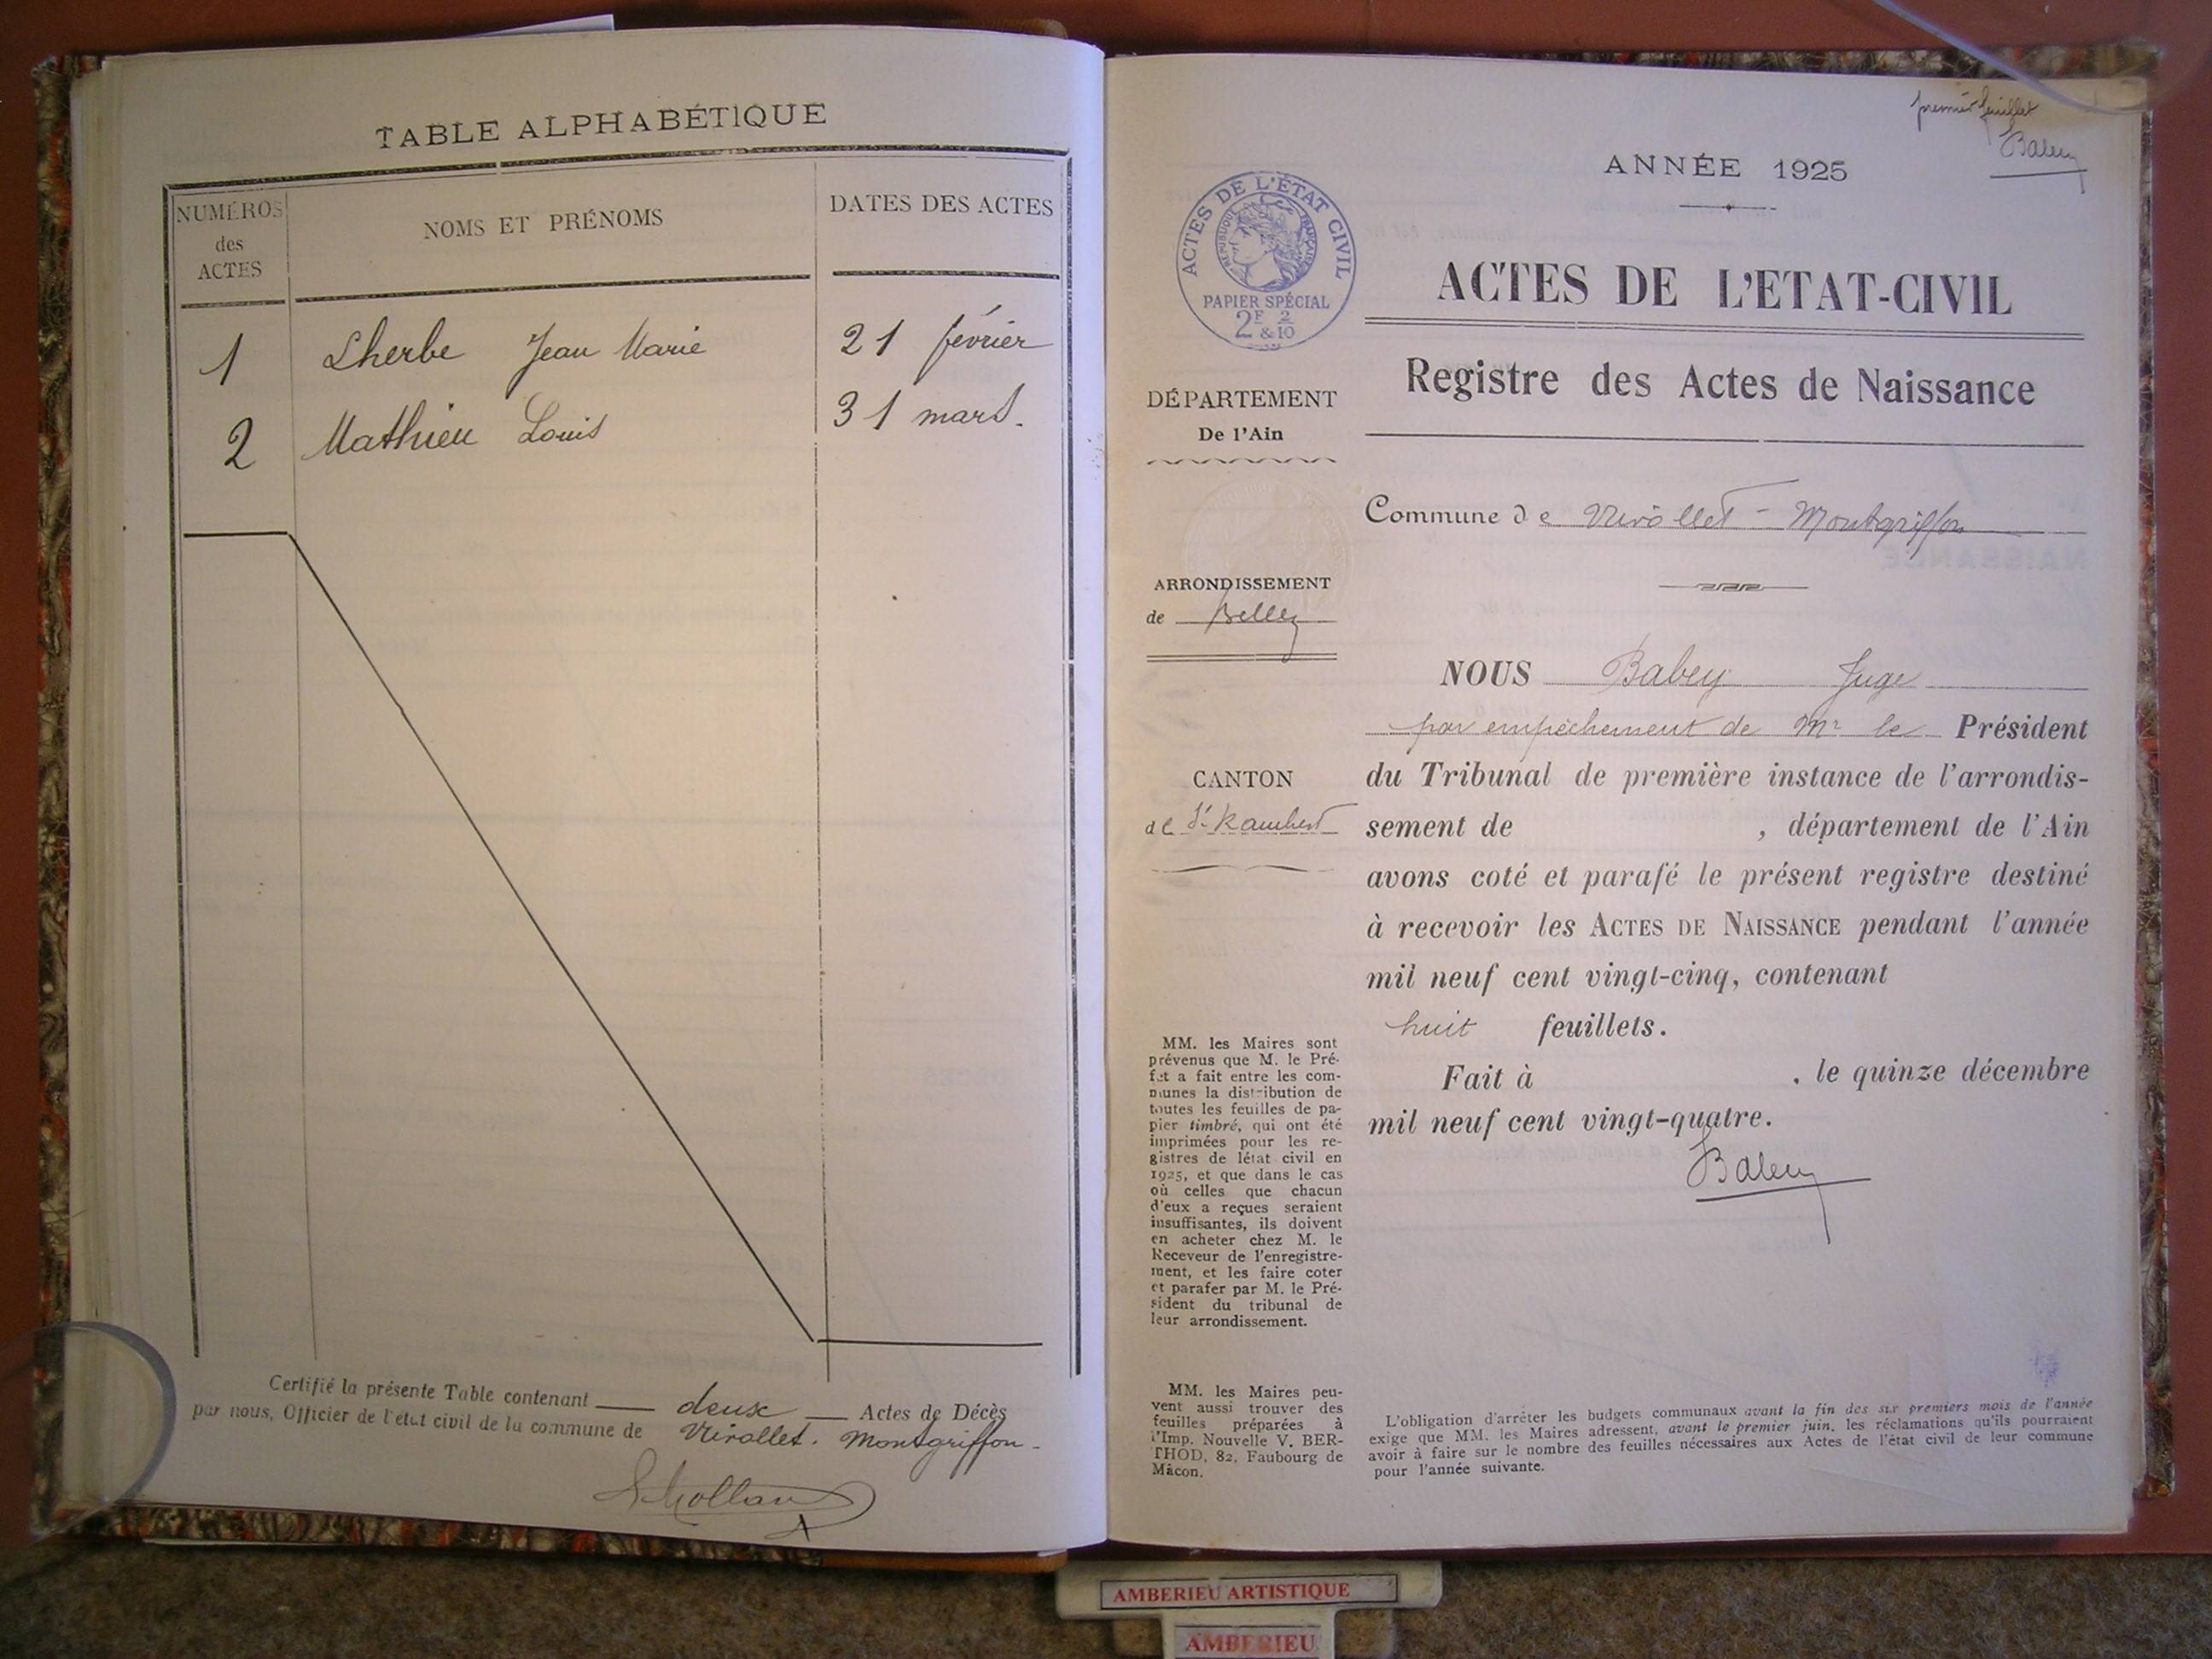 TABLE ALPHABÉTIQUE
NUMÉROS
des
ACTES
NOMS ET PRÉNOMS
DATES DES ACTES
1 Lherbe Jean Marie 21 février
2 Mathieu Louis 31 mars.
Certifié la présente Table contenant deux Actes de Décès
par nous, Officier de l'état civil de la commune de Nivollet. Montgriffon
premier feuillet
Babey
ANNÉE 1925
ACTES DE L'ÉTAT CIVIL
RÉPUBLIQUE FRANÇAISE
PAPIER SPÉCIAL
2F 2
& 10
ACTES DE L'ETAT-CIVIL
Registre des Actes de Naissance
DÉPARTEMENT
De l'Ain
Commune de Nivollet - Montgriffon
ARRONDISSEMENT
de Belley
CANTON
de St Rambert
NOUS Babey Juge
par empêchement de Mr le Président
du Tribunal de première instance de l'arrondis-
sement de , département de l'Ain
avons coté et parafé le présent registre destiné
à recevoir les ACTES DE NAISSANCE pendant l'année
mil neuf cent vingt-cinq, contenant
huit feuillets.
Fait à , le quinze décembre
mil neuf cent vingt-quatre.
Babey
MM. les Maires sont
prévenus que M. le Pré-
fet a fait entre les com-
munes la distribution de
toutes les feuilles de pa-
pier timbré, qui ont été
imprimées pour les re-
gistres de létat civil en
1925, et que dans le cas
où celles que chacun
d'eux a reçues seraient
insuffisantes, ils doivent
en acheter chez M. le
Receveur de l'enregistre-
ment, et les faire coter
et parafer par M. le Pré-
sident du tribunal de
leur arrondissement.
MM. les Maires peu-
vent aussi trouver des
feuilles préparées à
l'Imp. Nouvelle V. BER-
THOD, 82, Faubourg de
Mâcon.
L'obligation d'arrêter les budgets communaux avant la fin des six premiers mois de l'année
exige que MM. les Maires adressent, avant le premier juin, les réclamations qu'ils pourraient
avoir à faire sur le nombre des feuilles nécessaires aux Actes de l'état civil de leur commune
pour l'année suivante.
AMBERIEU ARTISTIQUE
AMBERIEU